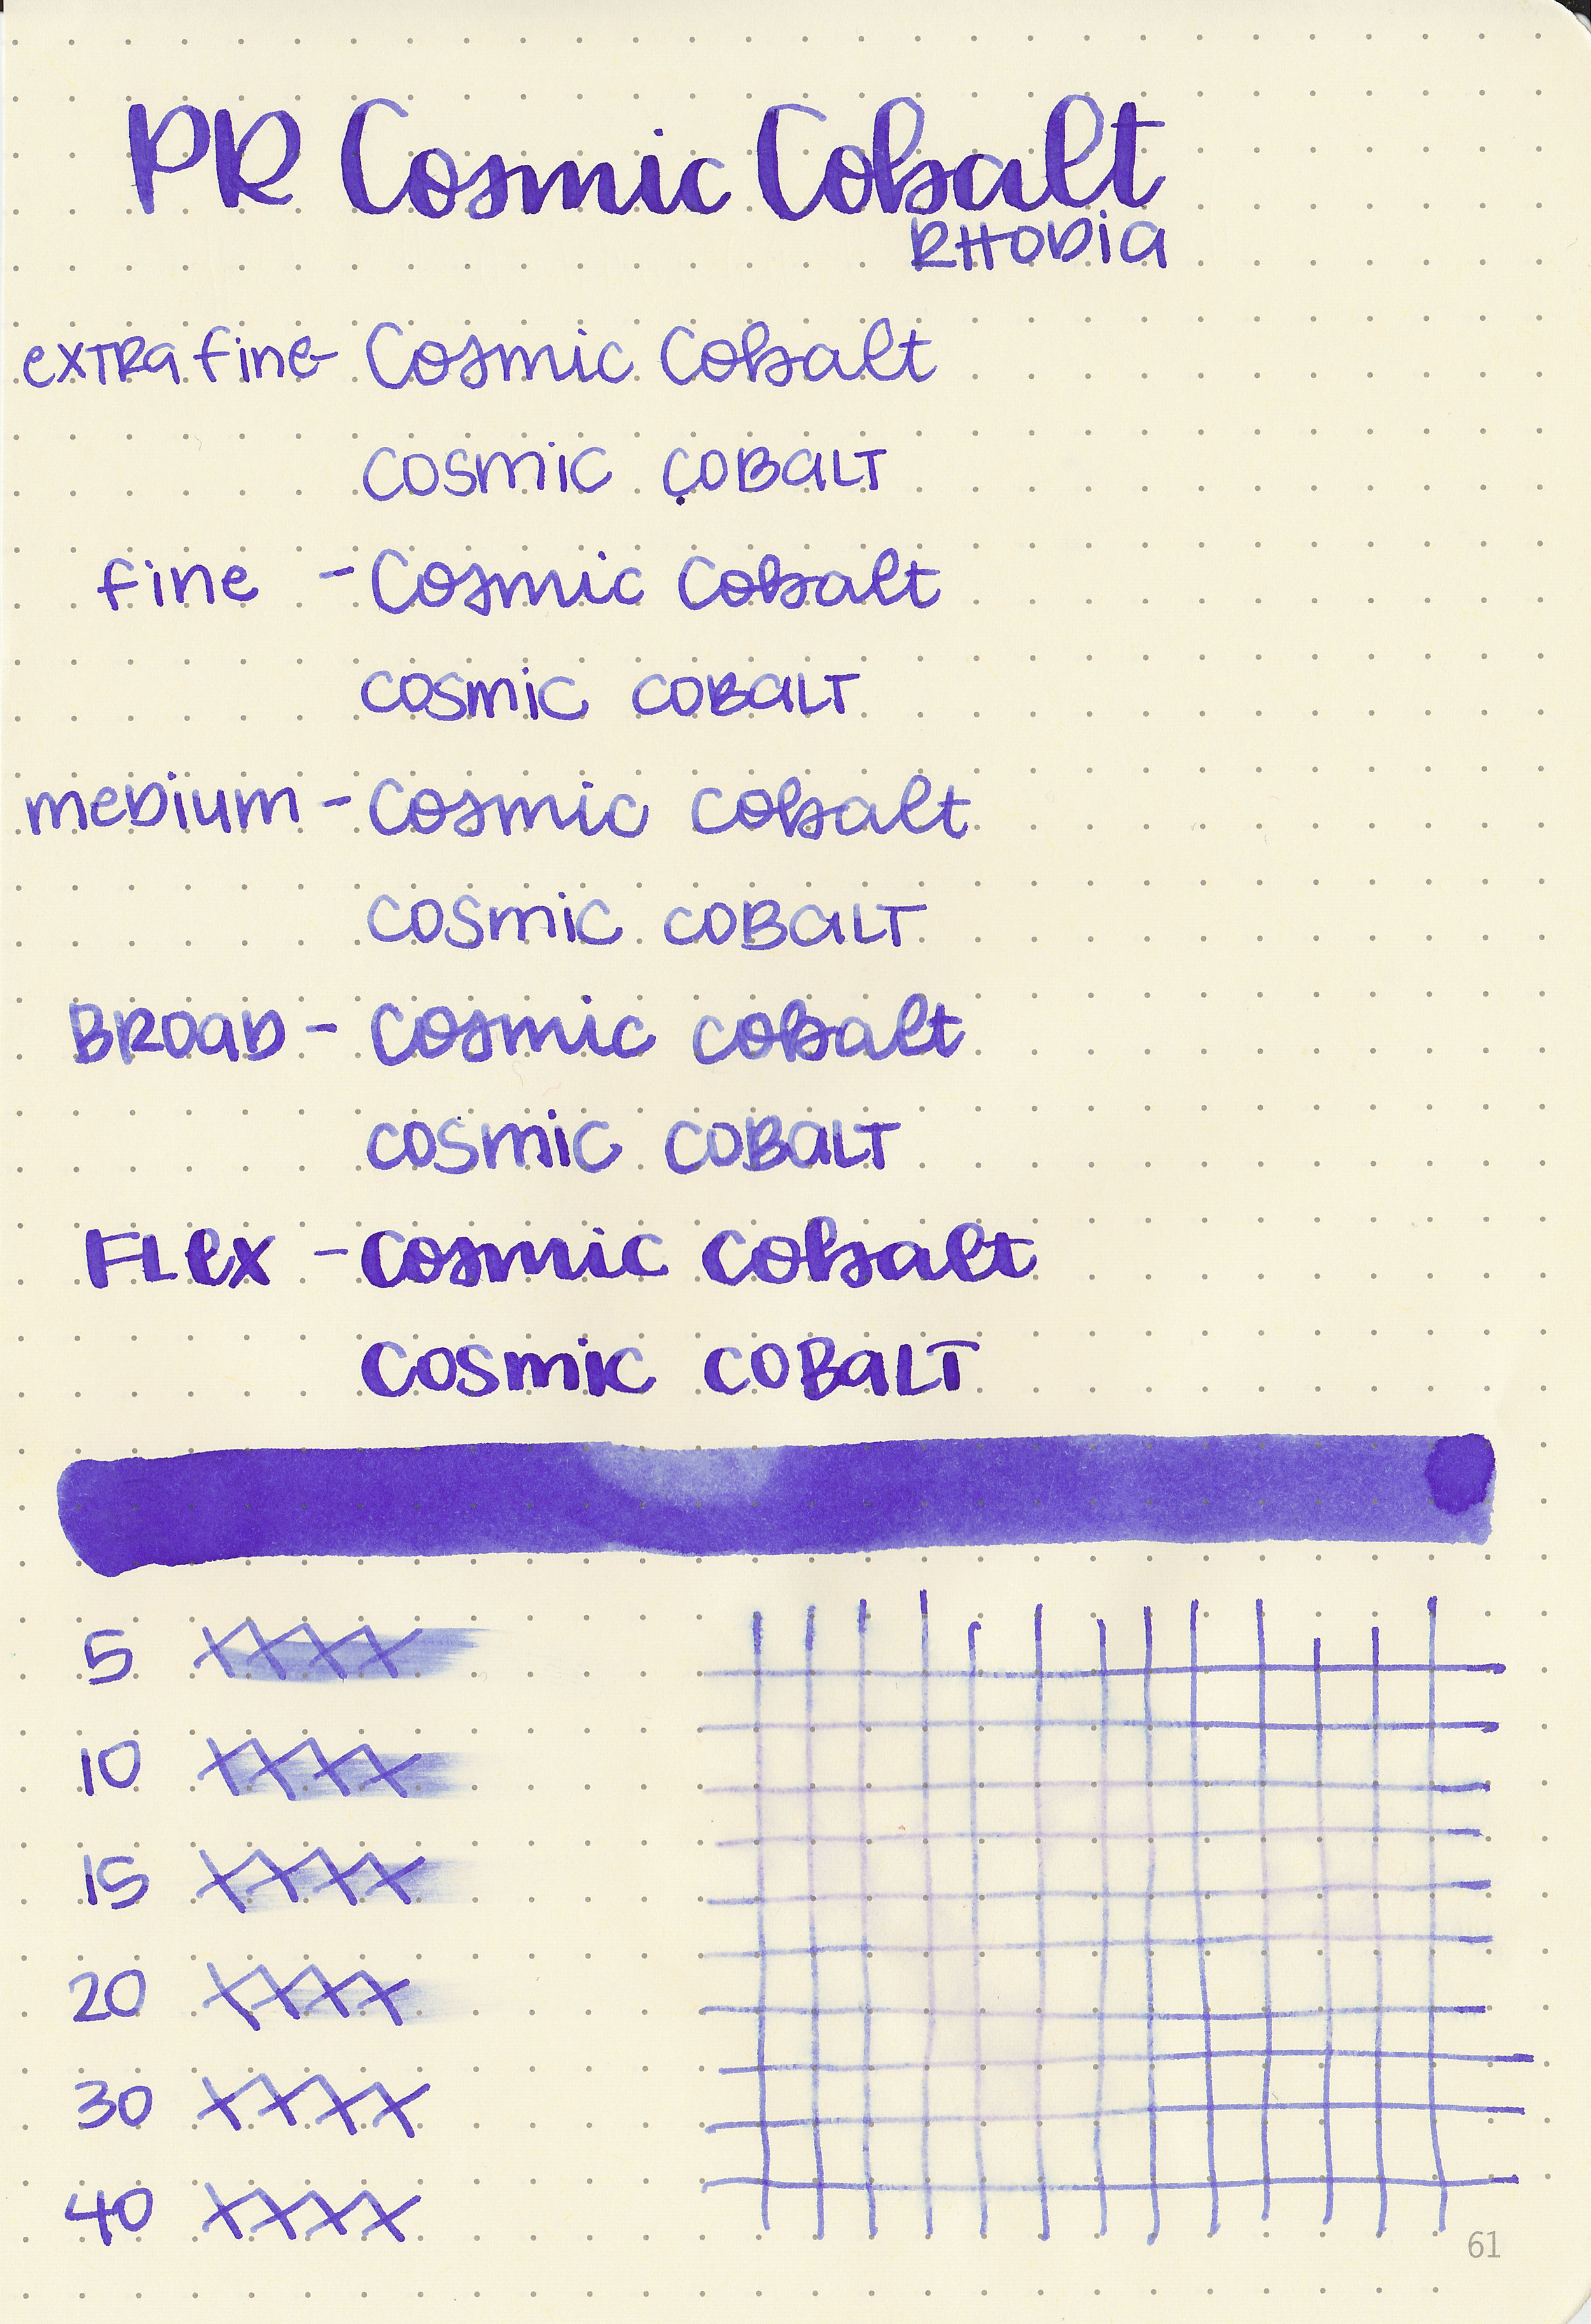 PR Cosmic Cobalt
RHODIA
extra fine - Cosmic Cobalt
COSMIC COBALT
fine - Cosmic Cobalt
COSMIC COBALT
medium - Cosmic Cobalt
COSMIC COBALT
BROAD - Cosmic Cobalt
COSMIC COBALT
FLEX - Cosmic Cobalt
COSMIC COBALT
5 XXXX
10 XXXX
15 XXXX
20 XXXX
30 XXXX
40 XXXX
61